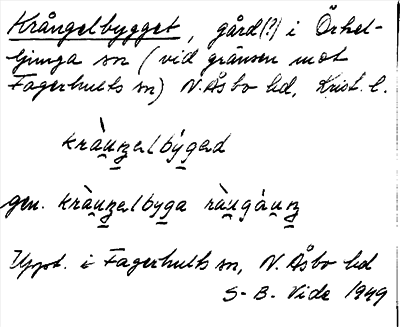 Krångelbygget, gård(?) i Örkel-
ljunga sn (vid gränsen mot
Fagerhults sn) N. Åsbo hd, Krist. l.
kràu̱ʒ̱əlbýg̱əd
gen. kràu̱ʒ̱əlbyg̱a ràu̱gàu̱ʒ̱
Uppt. i Fagerhults sn, N. Åsbo hd
S-B. Vide 1949